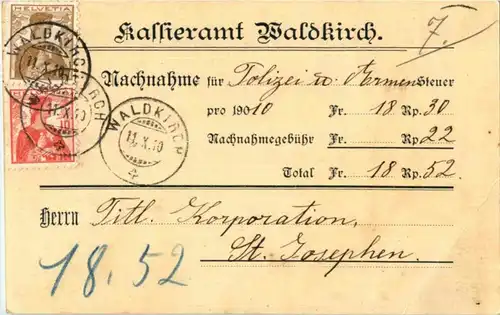 HELVETIA
Kassieramt Waldkirch.
7.
WALDKIRCH
11.X.10
WALDKIRCH
11.X.10
Nachnahme für Polizei u. Armensteuer
pro 19010 Fr. 18 Rp. 30
Nachnahmegebühr Rp. 22
Total Fr. 18 Rp. 52
Herrn Titl. Korporation,
St. Josephen.
18.52